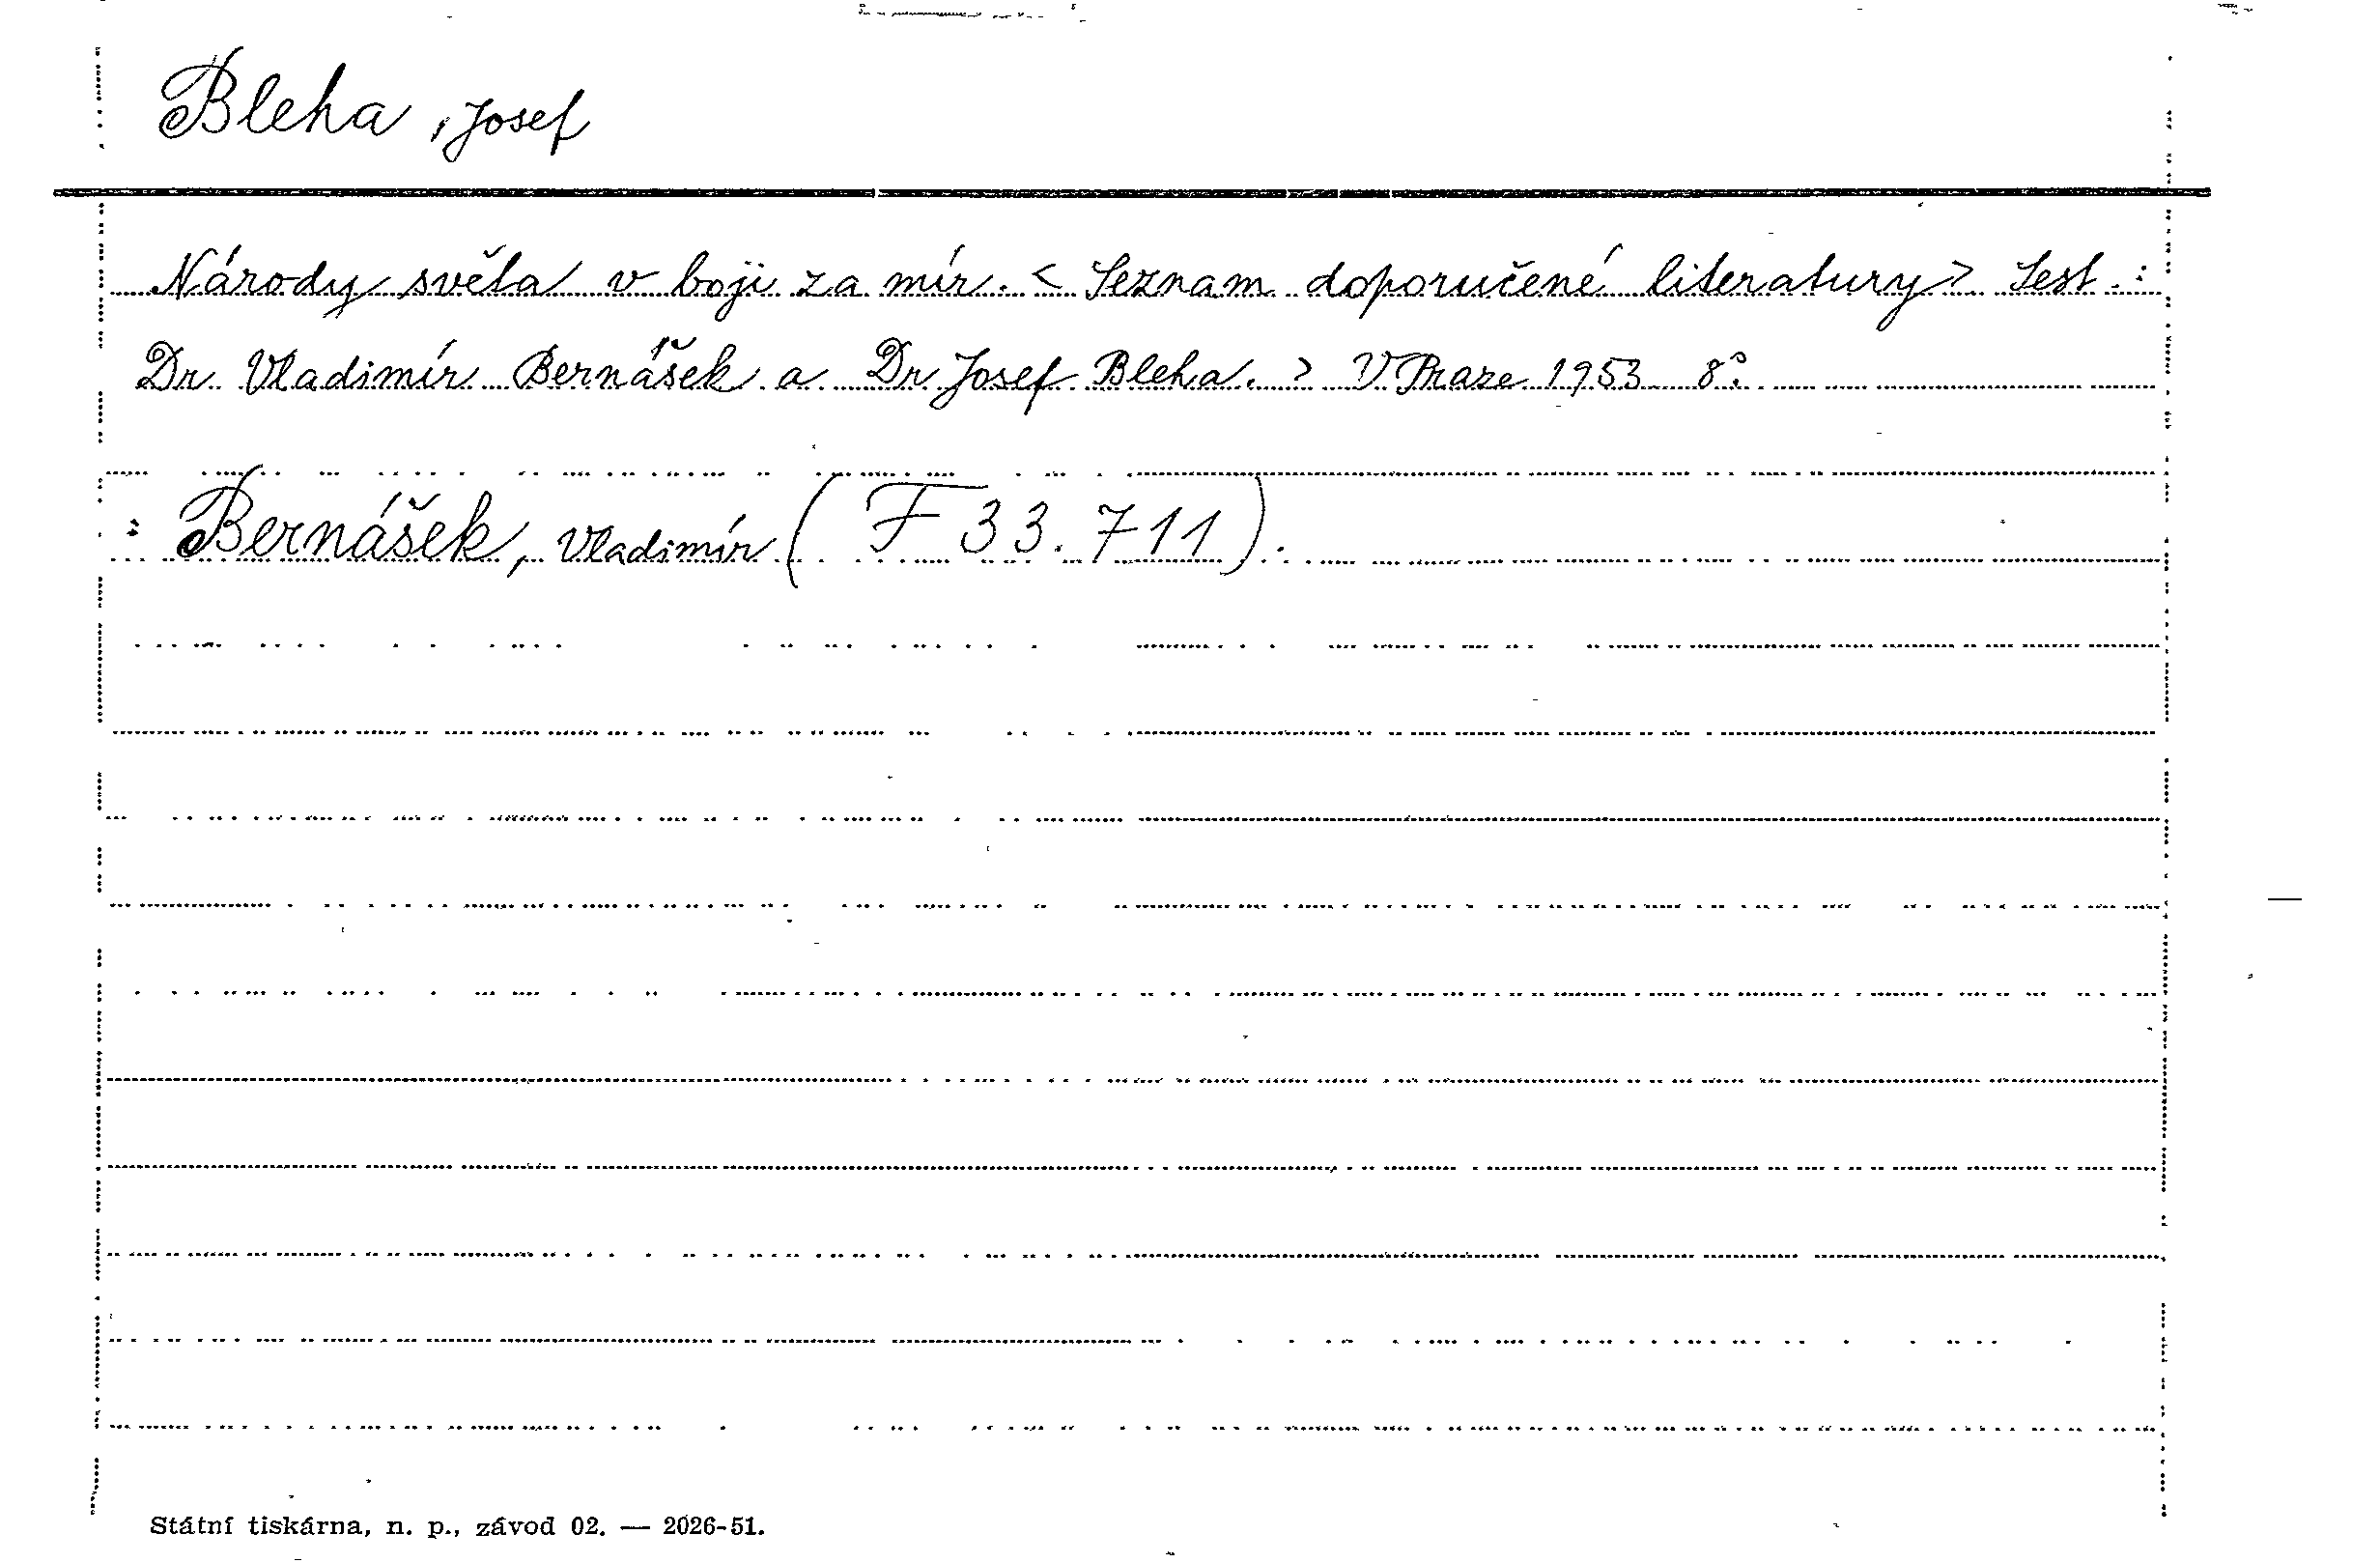 Bleha, Josef
Národy světa v boji za mír. < Seznam doporučené literatury > Sest.:
Dr. Vladimír Bernášek a Dr Josef Bleha. > V Praze 1953 8°.
: Bernášek, Vladimír ( F 33.711 ).
Státní tiskárna, n. p., závod 02. — 2026-51.